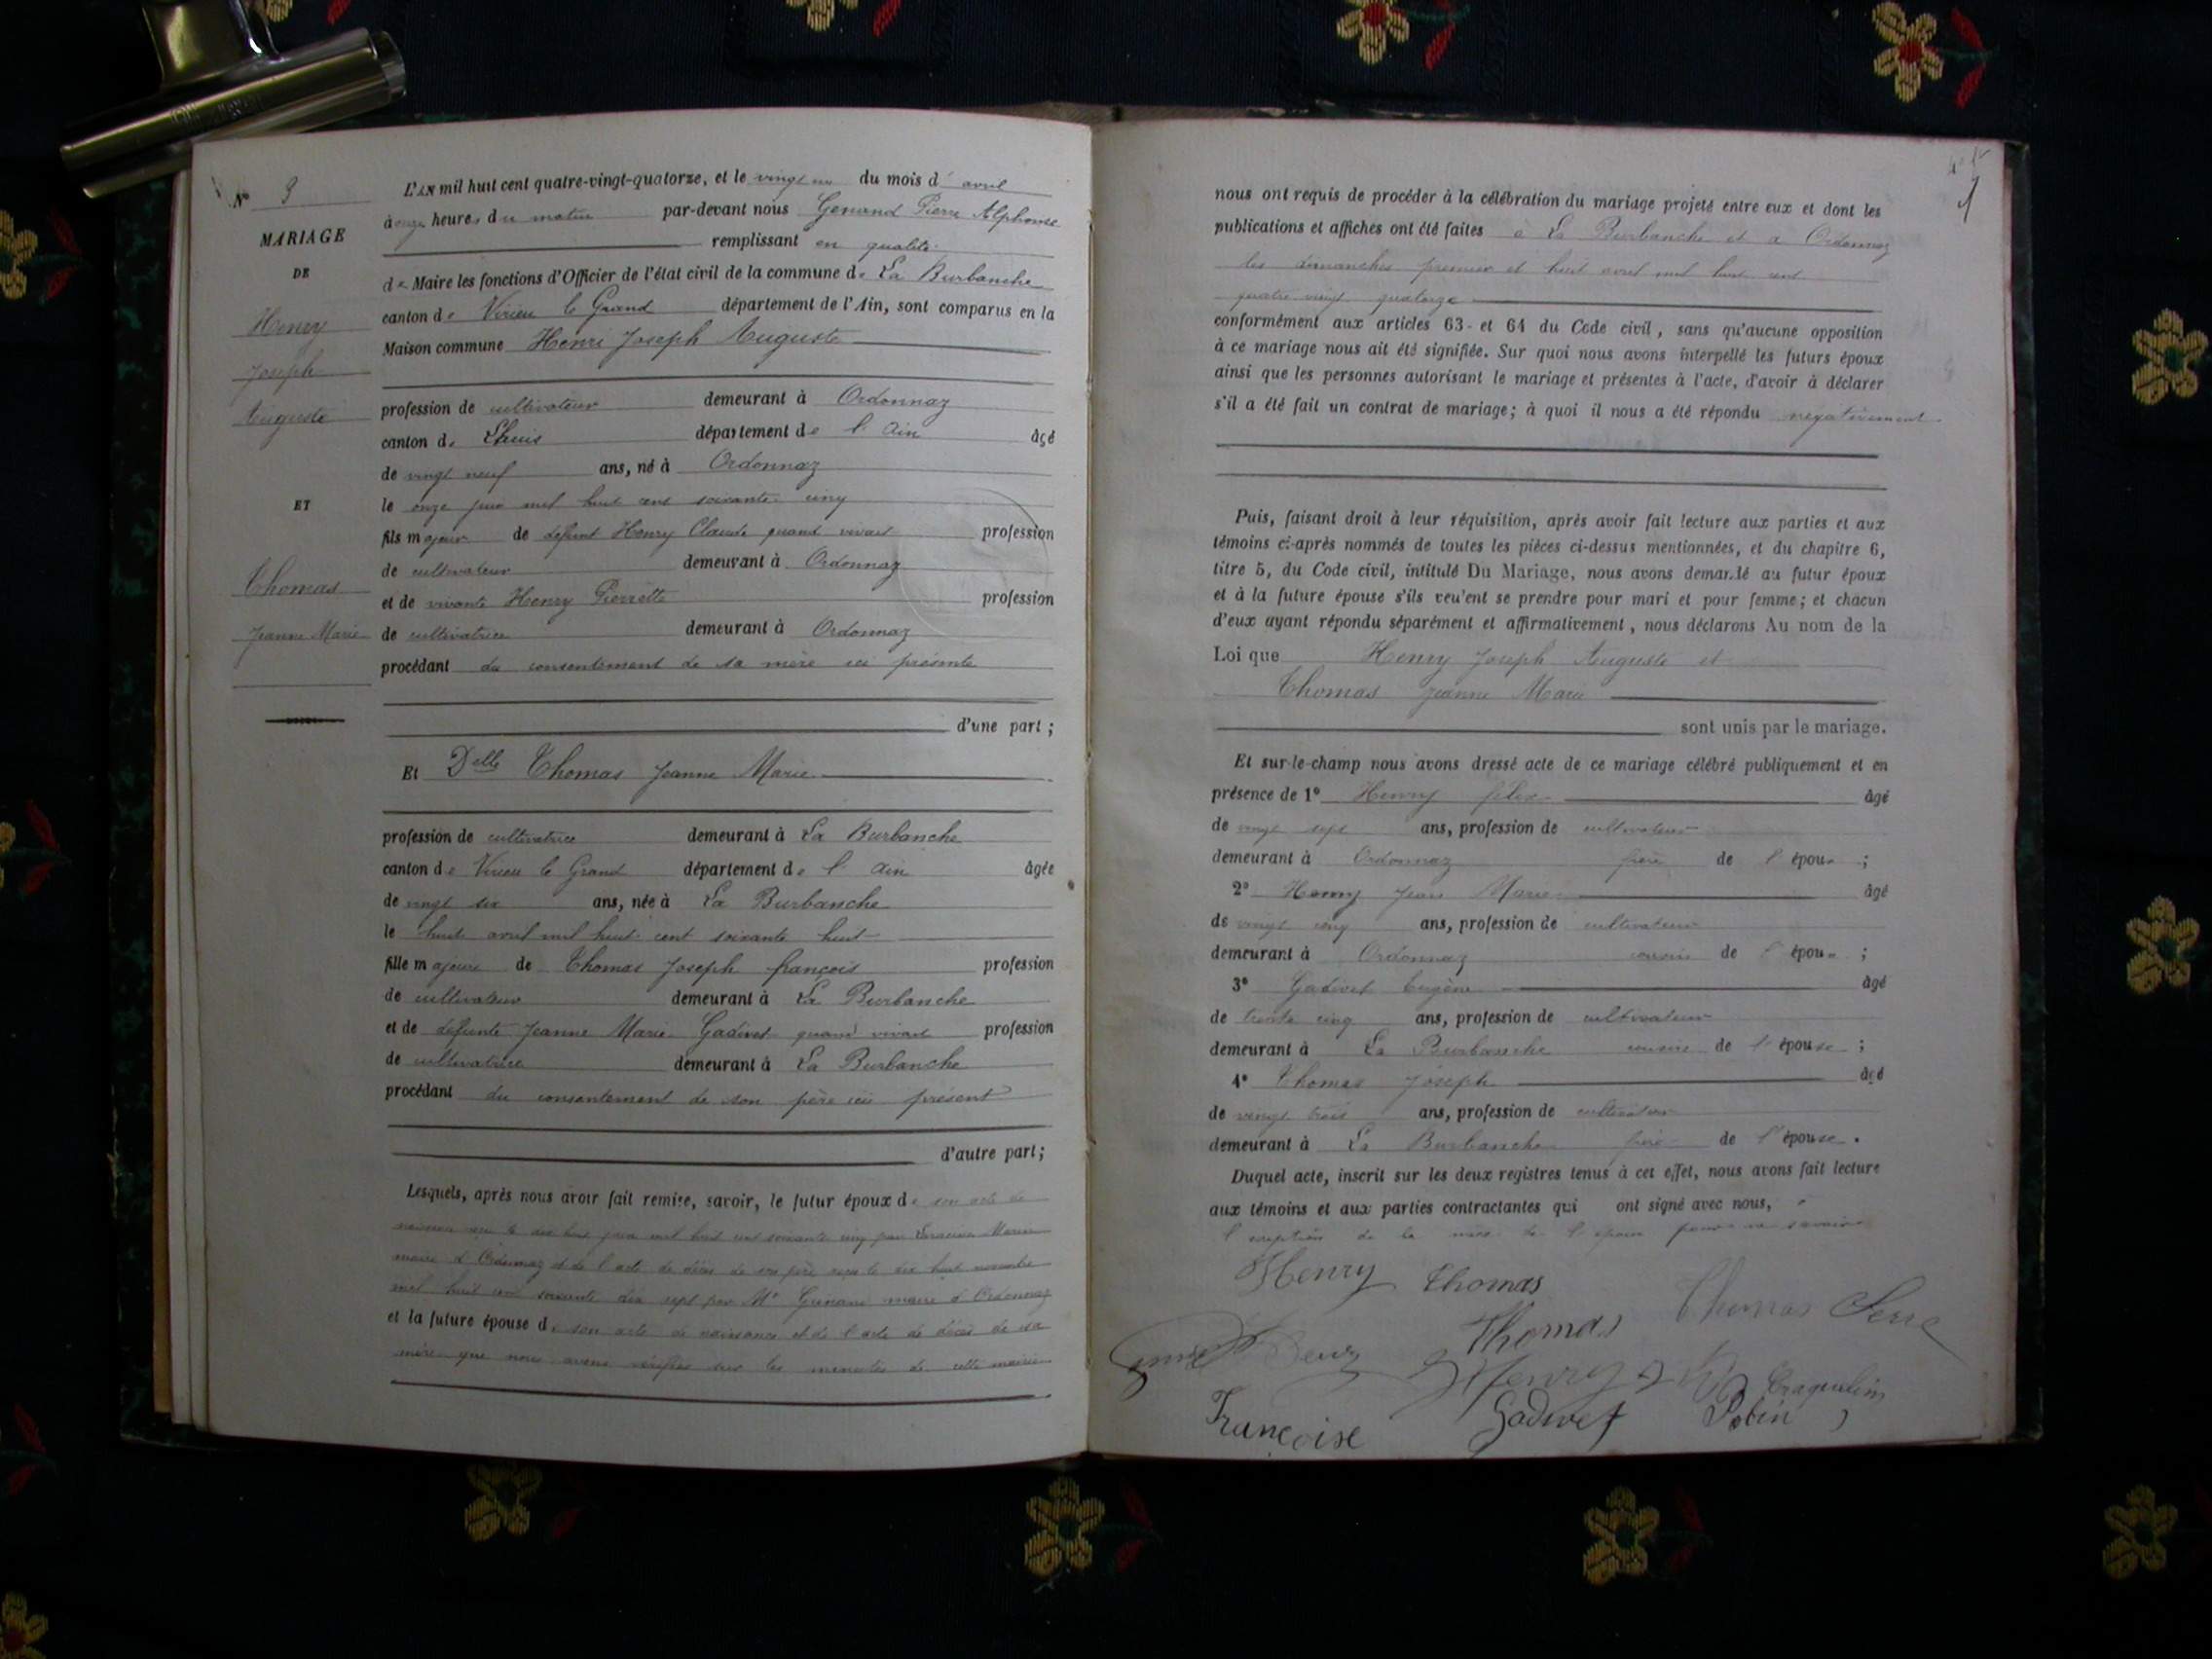 N° 3
MARIAGE
DE
Henry
Joseph
Auguste
ET
Thomas
Jeanne Marie
L'AN mil huit cent quatre-vingt-quatorze, et le vingt un du mois d' avril
à onze heures du matin par-devant nous Genand Pierre Alphonse
remplissant en qualité
de Maire les fonctions d'Officier de l'état civil de la commune de La Burbanche
canton de Virieu le Grand département de l'Ain, sont comparus en la
Maison commune Henri Joseph Auguste
profession de cultivateur demeurant à Ordonnaz
canton de Lhuis département de l'Ain âgé
de vingt neuf ans, né à Ordonnaz
le onze juin mil huit cent soixante cinq
fils majeur de défunt Henry Claude quand vivait profession
de cultivateur demeurant à Ordonnaz
et de vivante Henry Pierrette profession
de cultivatrice demeurant à Ordonnaz
procédant du consentement de sa mère ici présente
d'une part ;
Et Delle Thomas Jeanne Marie
profession de cultivatrice demeurant à La Burbanche
canton de Virieu le Grand département de l'Ain âgée
de vingt six ans, née à La Burbanche
le huit avril mil huit cent soixante huit
fille majeure de Thomas Joseph françois profession
de cultivateur demeurant à La Burbanche
et de défunte Jeanne Marie Gadivet quand vivait profession
de cultivatrice demeurant à La Burbanche
procédant du consentement de son père ici présent
d'autre part ;
Lesquels, après nous avoir fait remise, savoir, le futur époux de son acte de
naissance reçu le dix huit juin mil huit cent soixante cinq par Marin
maire d'Ordonnaz et de l'acte de décès de son père reçu le dix huit novembre
mil huit cent soixante dix sept par Mr maire d'Ordonnaz
et la future épouse de son acte de naissance et de l'acte de décès de sa
mère que nous avons vérifiés sur les minutes de cette mairie
nous ont requis de procéder à la célébration du mariage projeté entre eux et dont les
publications et affiches ont été faites à La Burbanche et à Ordonnaz
les dimanches premier et huit avril mil huit cent
quatre vingt quatorze
conformément aux articles 63 et 64 du Code civil, sans qu'aucune opposition
à ce mariage nous ait été signifiée. Sur quoi nous avons interpellé les futurs époux
ainsi que les personnes autorisant le mariage et présentes à l'acte, d'avoir à déclarer
s'il a été fait un contrat de mariage; à quoi il nous a été répondu négativement
Puis, faisant droit à leur réquisition, après avoir fait lecture aux parties et aux
témoins ci-après nommés de toutes les pièces ci-dessus mentionnées, et du chapitre 6,
titre 5, du Code civil, intitulé Du Mariage, nous avons demandé au futur époux
et à la future épouse s'ils veulent se prendre pour mari et pour femme; et chacun
d'eux ayant répondu séparément et affirmativement, nous déclarons Au nom de la
Loi que Henry Joseph Auguste et
Thomas Jeanne Marie
sont unis par le mariage.
Et sur-le-champ nous avons dressé acte de ce mariage célébré publiquement et en
présence de 1° Henry félix âgé
de vingt sept ans, profession de cultivateur
demeurant à Ordonnaz frère de l'époux ;
2° Henry Jean Marie âgé
de vingt cinq ans, profession de cultivateur
demeurant à Ordonnaz cousin de l'époux ;
3° Gadivet Eugène âgé
de trente cinq ans, profession de cultivateur
demeurant à La Burbanche cousin de l'épouse ;
4° Thomas Joseph âgé
de vingt trois ans, profession de cultivateur
demeurant à La Burbanche frère de l'épouse .
Duquel acte, inscrit sur les deux registres tenus à cet effet, nous avons fait lecture
aux témoins et aux parties contractantes qui ont signé avec nous, à
l'exception de la mère de l'époux pour ne savoir
Henry Thomas
Thomas Thomas Serre
Henry
Traquelin
Françoise Gadivet Pobin